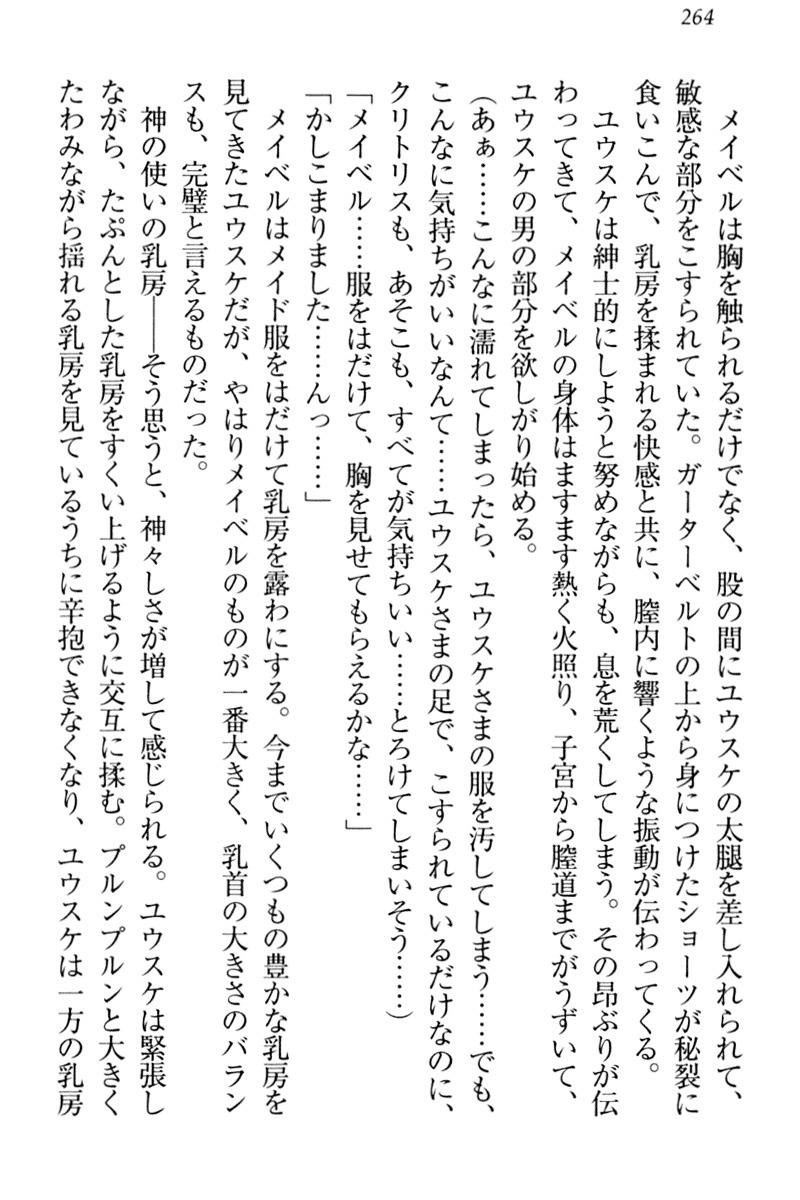 264
メイベルは胸を触られるだけでなく、股の間にユウスケの太腿を差し入れられて、
敏感な部分をこすられていた。ガーターベルトの上から身につけたショーツが秘裂に
食いこんで、乳房を揉まれる快感と共に、膣内に響くような振動が伝わってくる。
ユウスケは紳士的にしようと努めながらも、息を荒くしてしまう。その昂ぶりが伝
わってきて、メイベルの身体はますます熱く火照り、子宮から膣道までがうずいて、
ユウスケの男の部分を欲しがり始める。
(あぁ……こんなに濡れてしまったら、ユウスケさまの服を汚してしまう……でも、
こんなに気持ちがいいなんて……ユウスケさまの足で、こすられているだけなのに、
クリトリスも、あそこも、すべてが気持ちいい……とろけてしまいそう……)
「メイベル……服をはだけて、胸を見せてもらえるかな……」
「かしこまりました……んっ……」
メイベルはメイド服をはだけて乳房を露わにする。今までいくつもの豊かな乳房を
見てきたユウスケだが、やはりメイベルのものが一番大きく、乳首の大きさのバラン
スも、完璧と言えるものだった。
神の使いの乳房――そう思うと、神々しさが増して感じられる。ユウスケは緊張し
ながら、たぷんとした乳房をすくい上げるように交互に揉む。プルンプルンと大きく
たわみながら揺れる乳房を見ているうちに辛抱できなくなり、ユウスケは一方の乳房